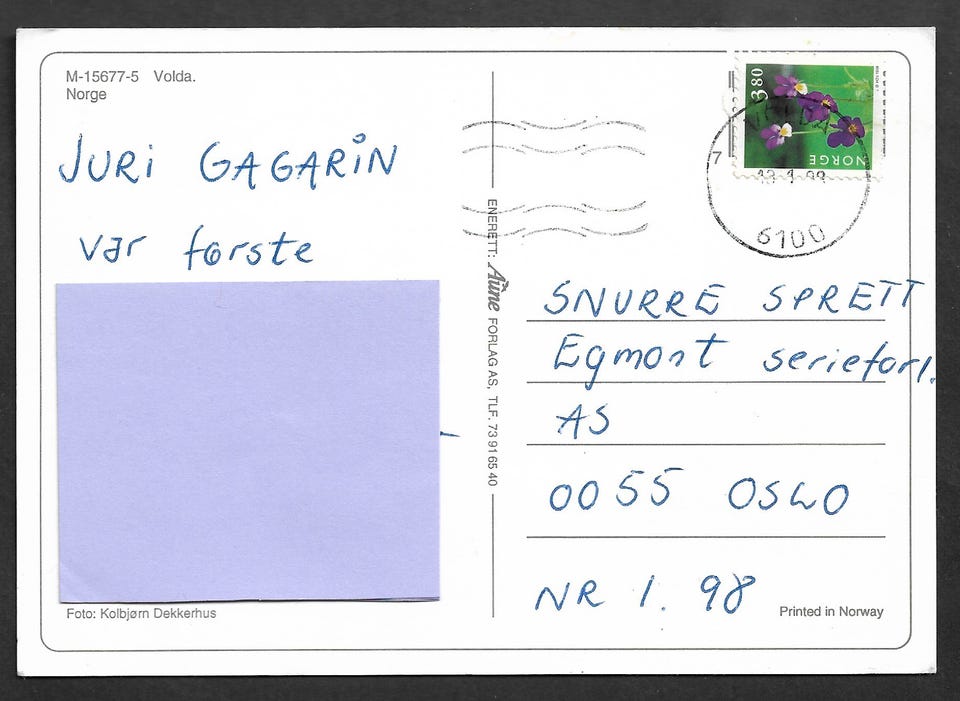 M-15677-5 Volda.
Norge
JURi GAGARIN
var første
Foto: Kolbjørn Dekkerhus
ENERETT: Aune FORLAG AS, TLF. 73 91 65 40
380
NORGE
7
6100
SNURRE SPRETT
Egmont serieforl.
AS
0055 OSLO
NR 1. 98
Printed in Norway